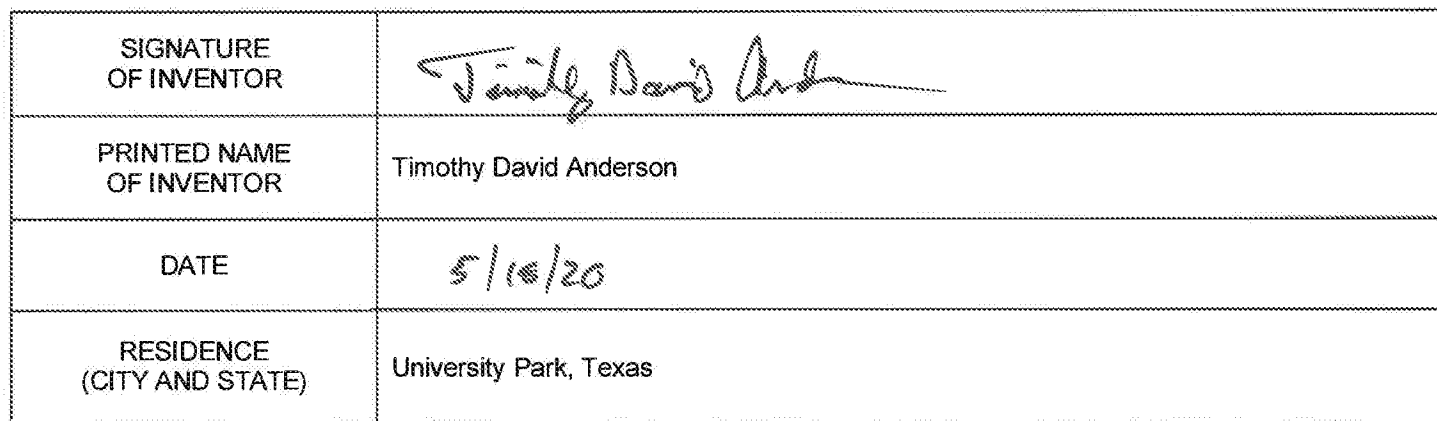 SIGNATURE
OF INVENTOR
Timothy David
PRINTED NAME
OF INVENTOR
Timothy David Anderson
DATE
RESIDENCE
(CITY AND STATE)
University Park, Texas